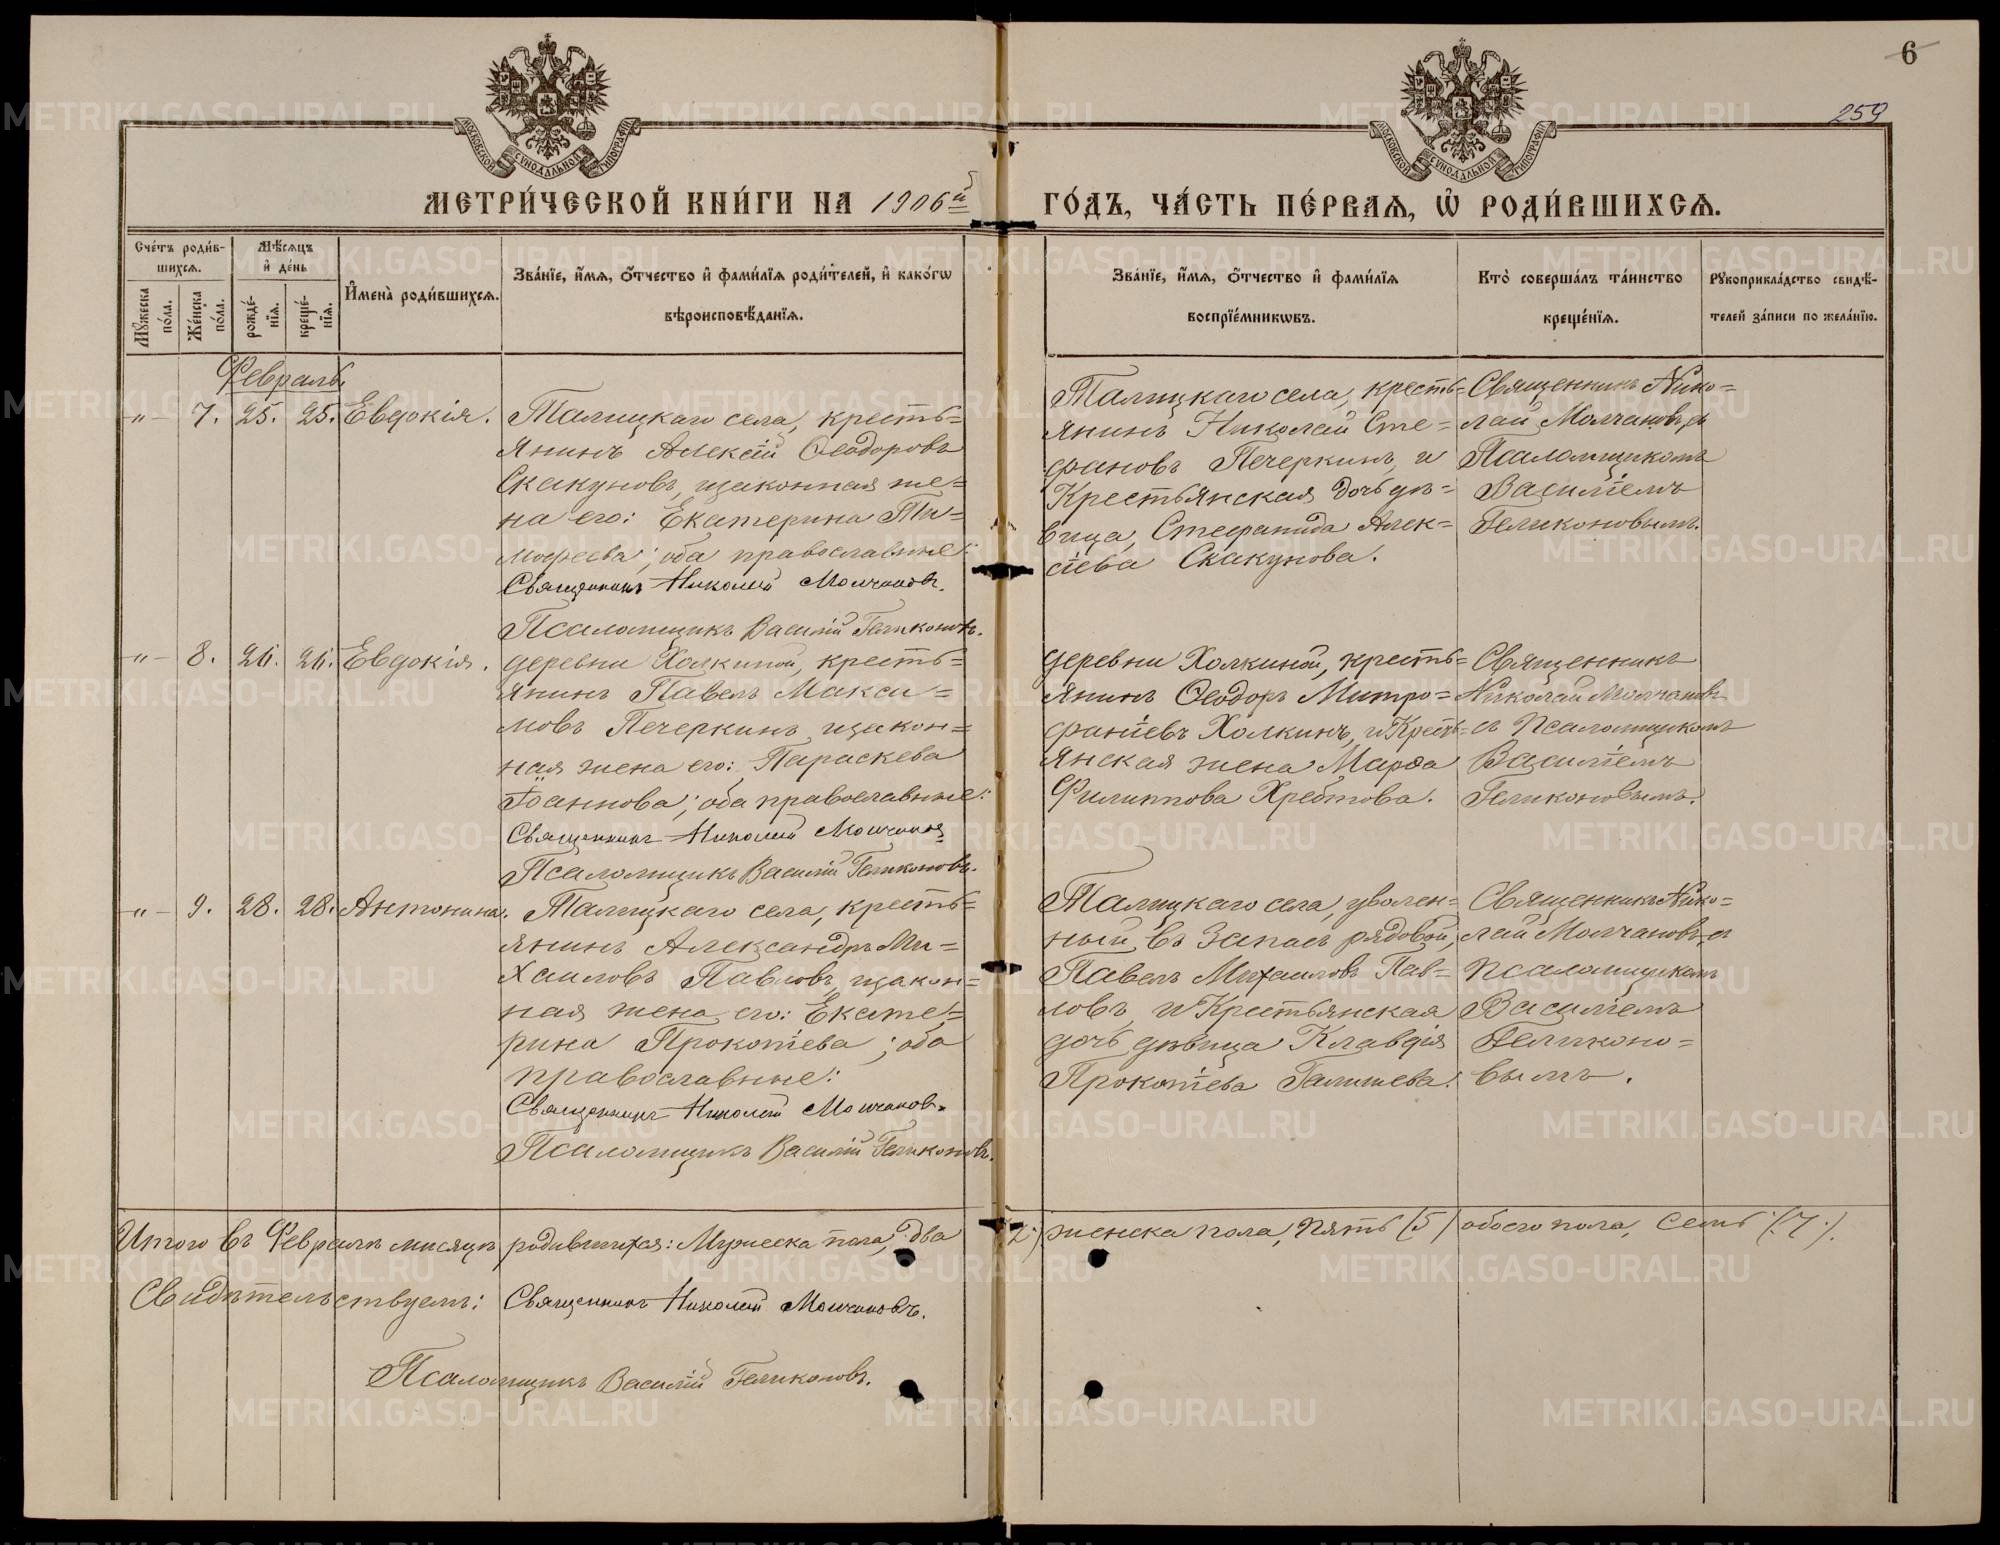 6
259
МОСКОВСКОЙ СѴНОДАЛЬНОЙ ТИПОГРАФІИ
МОСКОВСКОЙ СѴНОДАЛЬНОЙ ТИПОГРАФІИ
МЕТРИ́ЧЕСКОЙ КНИ́ГИ НА 1906й
ГО́ДЪ, ЧА́СТЬ ПЕ́РВАЯ, Ѡ҆ РОДИ́ВШИХСЯ.
Сче́тъ роди́в-
шихся.
Мѣ́сяцъ
и҆ де́нь
Мꙋ́жеска по́ла.
Же́нска по́ла.
рожде́-
нїя.
креще́-
нїя.
И҆мена̀ роди́вшихся.
Зва́нїе, и҆́мя, ѻ҆́тчество и҆ фами́лїя роди́телей, и҆ како́гѡ
вѣроисповѣ́данїя.
Зва́нїе, и҆́мя, ѻ҆́тчество и҆ фами́лїя
воспрїе́мникѡвъ.
Кто̀ соверша́лъ та́инство
креще́нїя.
Рꙋкоприкла́дство свидѣ́-
телей за́писи по жела́нїю.
Февраль.
-"- 7. 25. 25. Евдокія.
Талицкаго села, кресть=
янинъ Алексій Ѳеодоровъ
Скакуновъ, изаконная же=
на его: Екатерина Ти=
моѳеева; оба православные:
Священникъ Николай Молчановъ.
Псаломщикъ Василій Геликоновъ.
Талицкаго села, кресть=
янинъ Николай Сте=
фановъ Печеркинъ, и
Крестьянская дочь дѣ=
вица, Стефанида Алек=
сіева Скакунова.
Священникъ Нико=
лай Молчановъ, съ
Псаломщикомъ
Василіемъ
Геликоновымъ.
-"- 8. 26. 26. Евдокія.
деревни Холкиной, кресть=
янинъ Павелъ Макси=
мовъ Печеркинъ, изакон=
ная жена его: Параскева
Іоаннова; оба православные:
Священникъ Николай Молчановъ
Псаломщикъ Василій Геликоновъ.
деревни Холкиной, кресть=
янинъ Ѳеодоръ Митро=
фаніевъ Холкинъ, и Кресть=
янская жена Марѳа
Филиппова Хребтова.
Священникъ
Николай Молчановъ
съ Псаломщикомъ
Василіемъ
Геликоновымъ.
-"- 9. 28. 28. Антонина.
Талицкаго села, кресть=
янинъ Александръ Ми=
хаиловъ Павловъ, изакон=
ная жена его: Екате=
рина Прокопіева; оба
православные:
Священникъ Николай Молчановъ.
Псаломщикъ Василій Геликоновъ.
Талицкаго села, уволен=
ный въ Запасъ рядовой,
Павелъ Михаиловъ Пав=
ловъ, и Крестьянская
дочь дѣвица Клавдія
Прокопіева Галишева.
Священникъ Нико=
лай Молчановъ, съ
Псаломщикомъ
Василіемъ
Геликоно=
вымъ.
Итого въ Февралѣ мѣсяцѣ родившихся: Мужеска пола, два (2.) женска пола, пять (5) обоего пола, семь (7.).
Свидѣтельствуемъ: Священникъ Николай Молчановъ.
Псаломщикъ Василій Геликоновъ.
METRIKI.GASO-URAL.RU